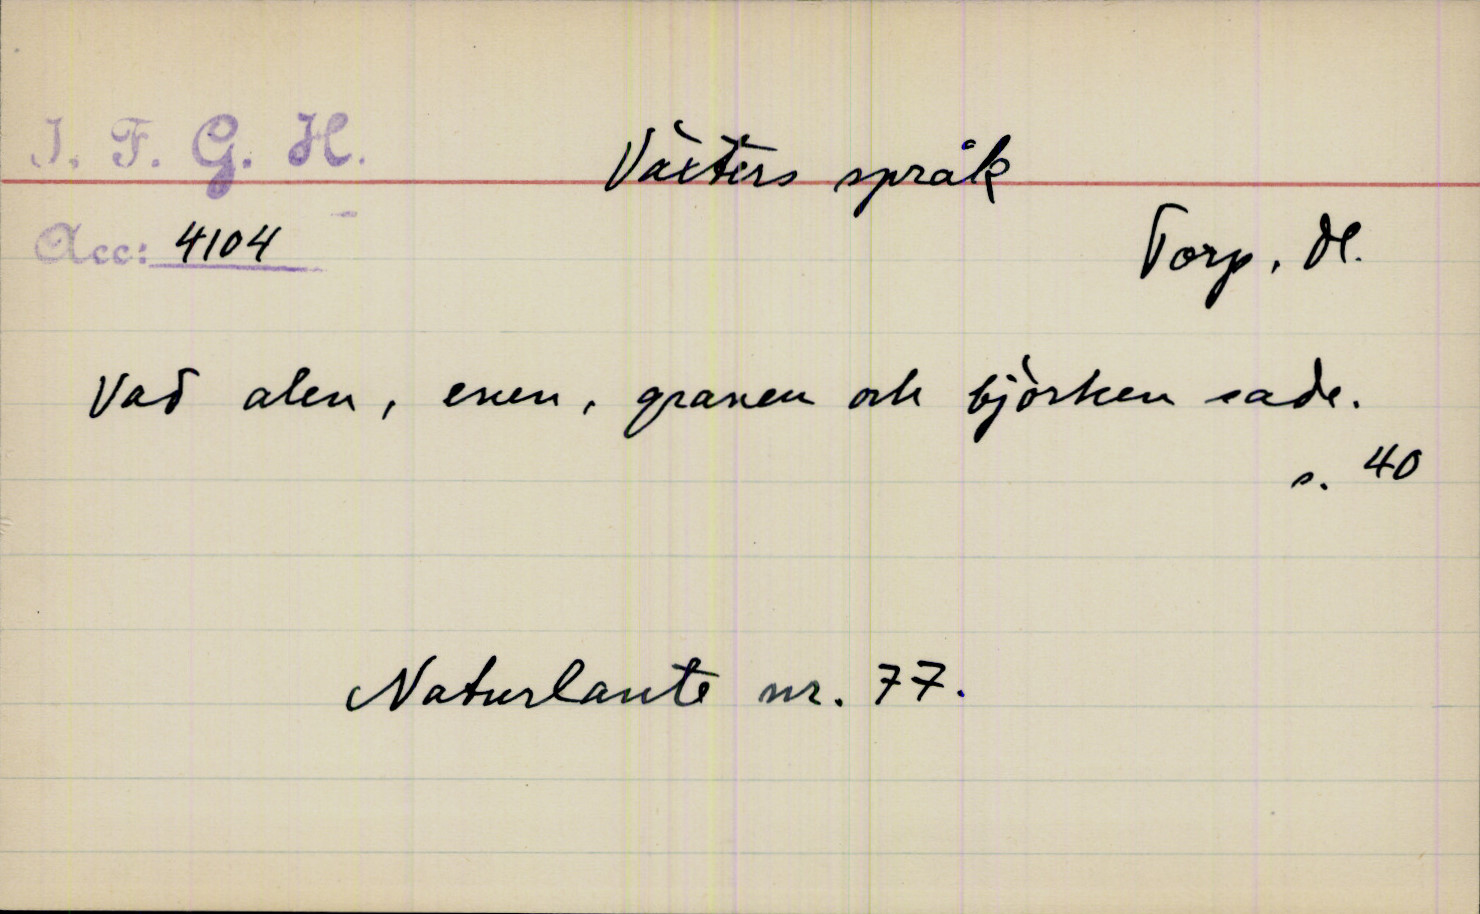 I. F. G. H.
Växters språk
Acc: 4104
Torp. Dl.
Vad alen, enen, granen och björken sade.
s. 40
Naturlaute nr. 77.